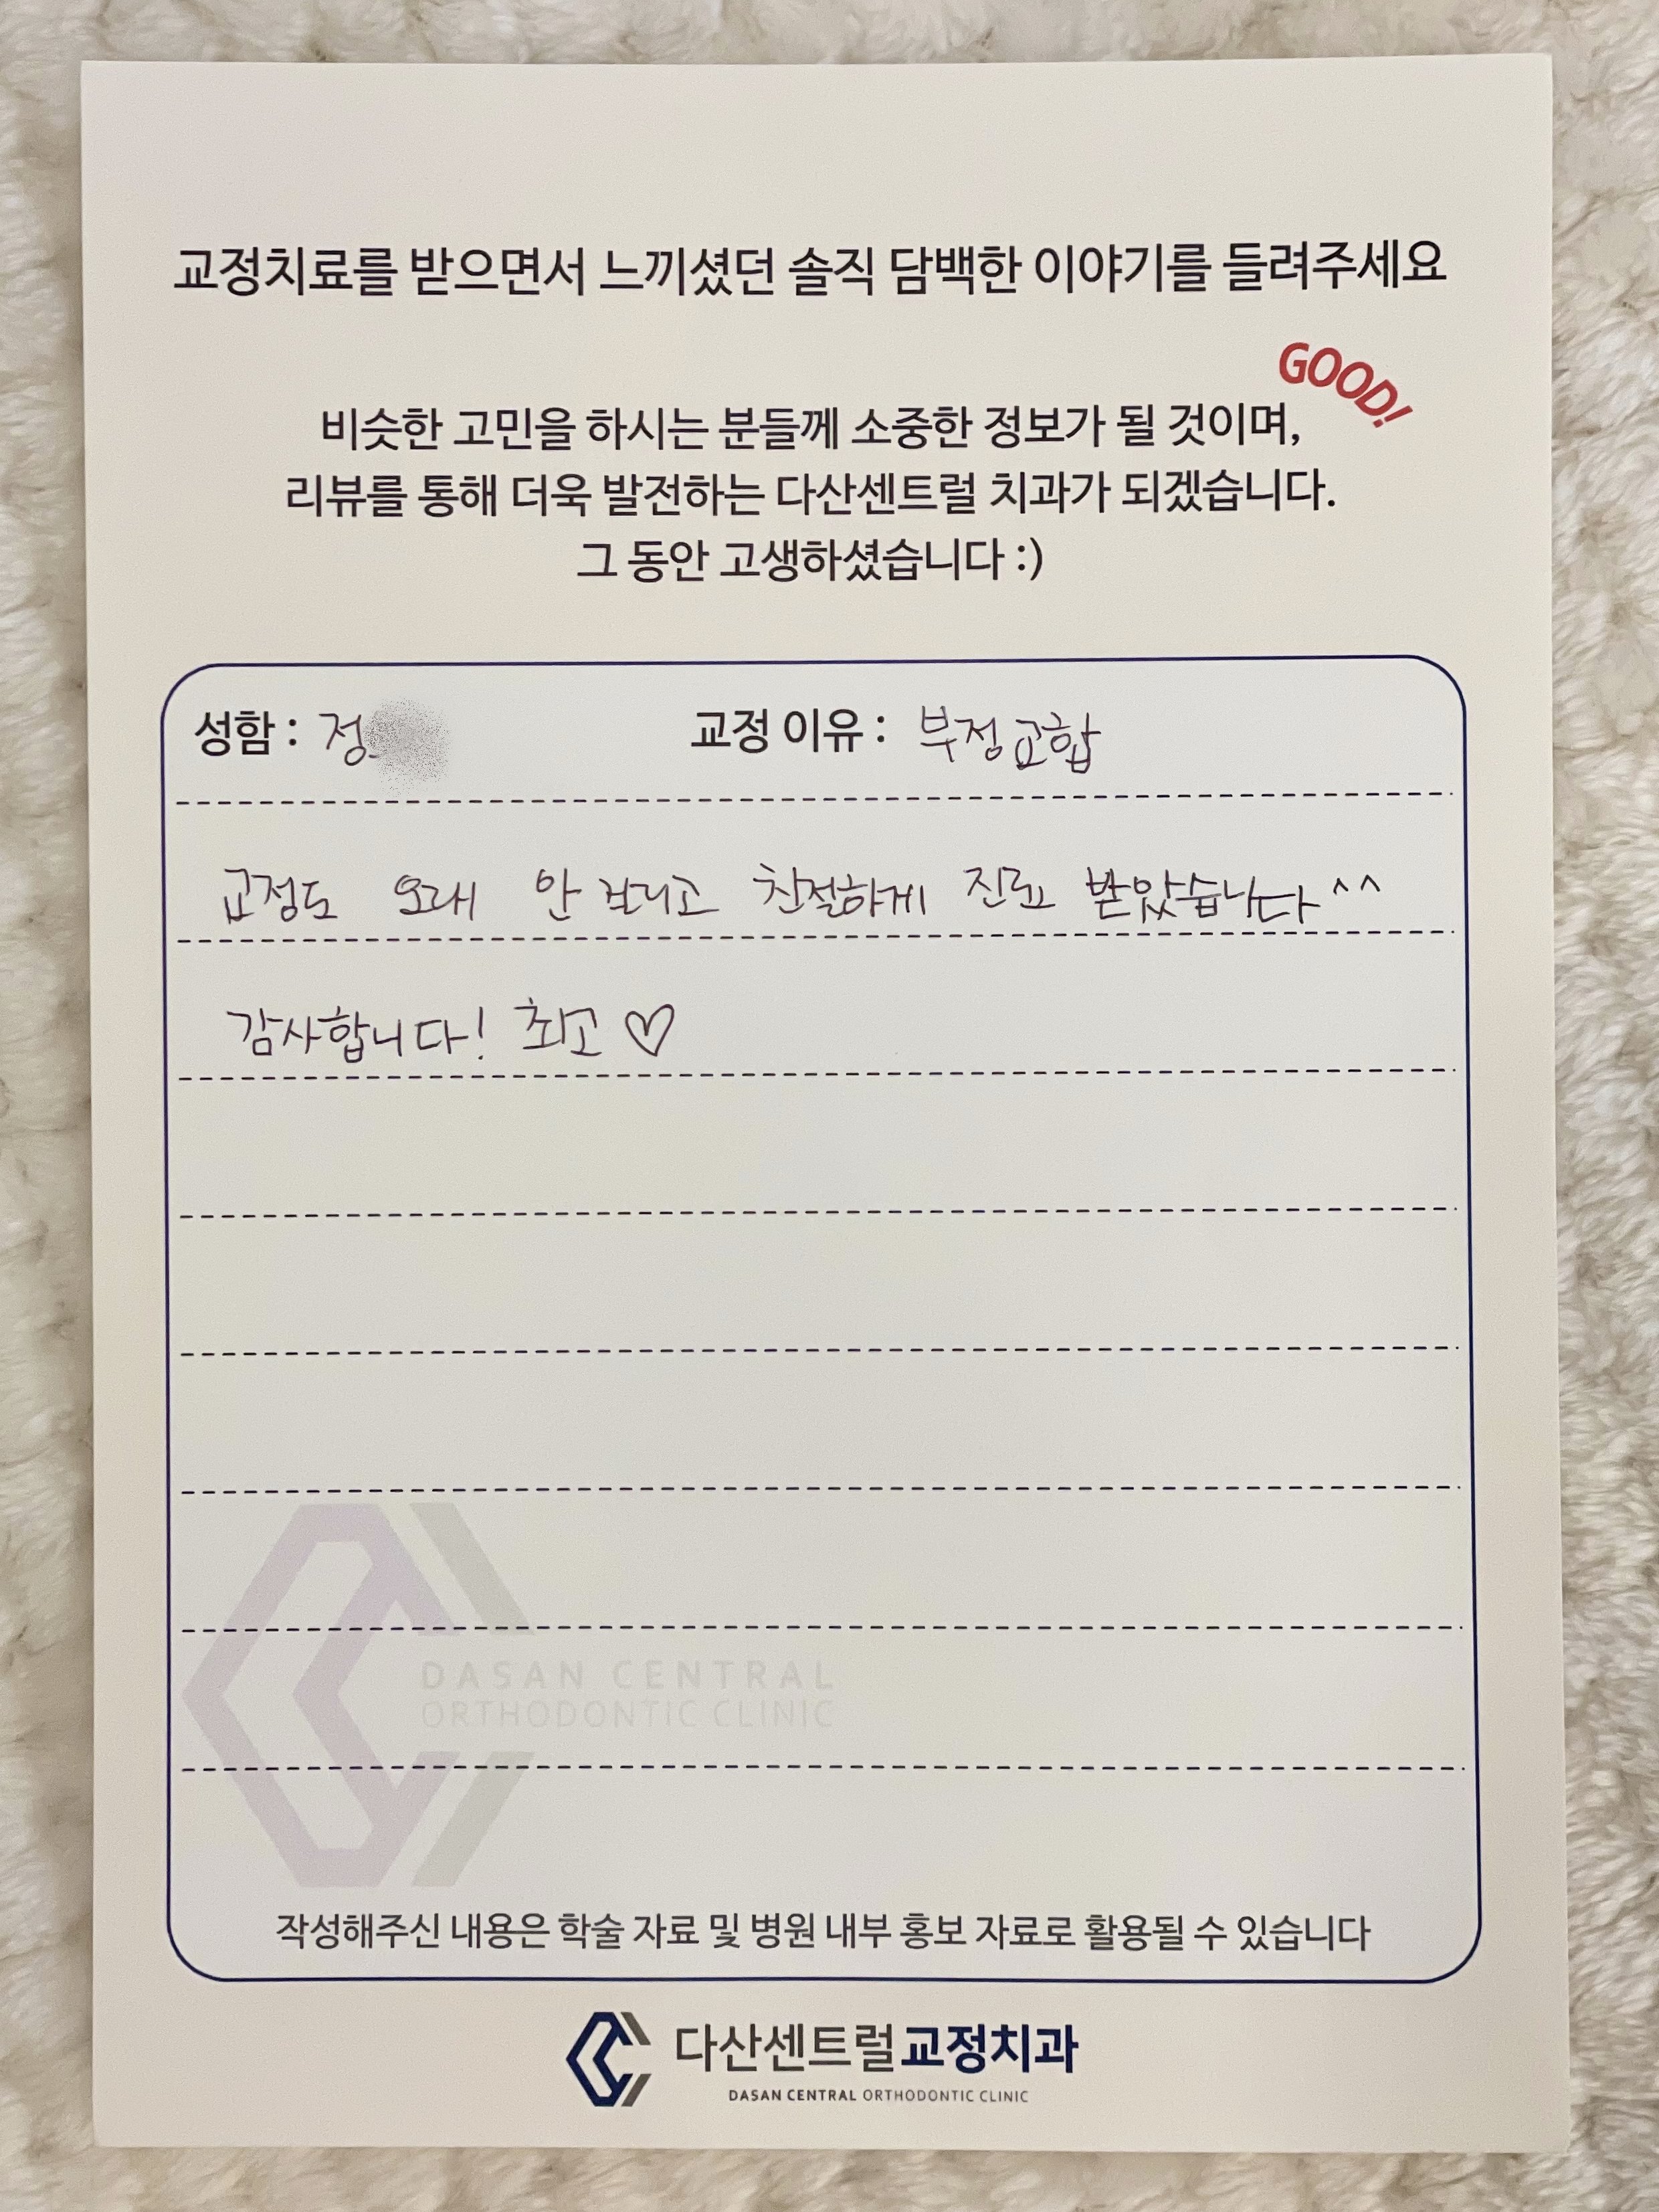 교정치료를 받으면서 느끼셨던 솔직 담백한 이야기를 들려주세요
GOOD!
비슷한 고민을 하시는 분들께 소중한 정보가 될 것이며,
리뷰를 통해 더욱 발전하는 다산센트럴 치과가 되겠습니다.
그 동안 고생하셨습니다 :)
성함 : 정 교정 이유 : 부정교합
교정도 오래 안 걸리고 친절하게 진료 받았습니다^^
감사합니다! 최고♡
DASAN CENTRAL
ORTHODONTIC CLINIC
작성해주신 내용은 학술 자료 및 병원 내부 홍보 자료로 활용될 수 있습니다
다산센트럴교정치과
DASAN CENTRAL ORTHODONTIC CLINIC